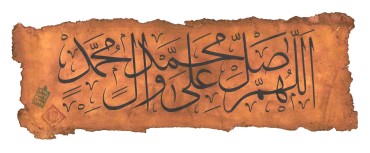 اللّهُمَّ صَلِّ عَلى مُحَمَّدٍ وَآلِ مُحَمَّدٍ